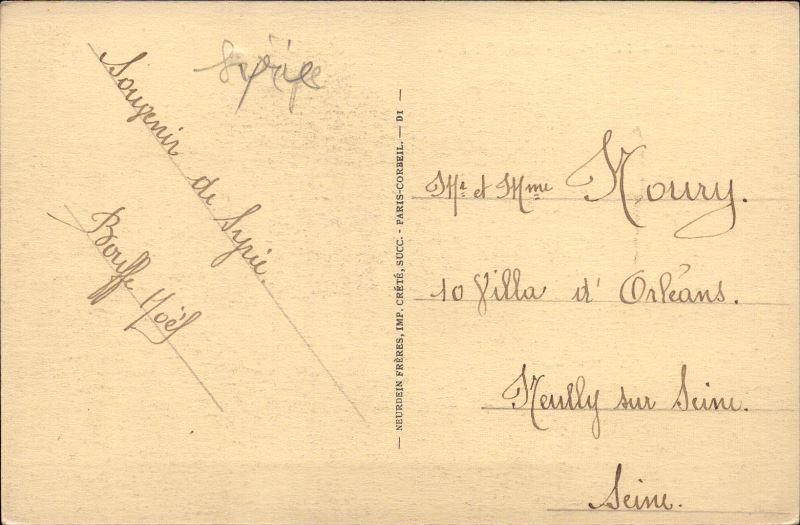 Syrie
Souvenir de Syrie.
Bouffe Noël
— NEURDEIN FRÈRES, IMP. CRÉTÉ, SUCC. - PARIS-CORBEIL. — DI —
Mr et Mme Noury.
10 Villa d' Orléans.
Neuilly sur Seine.
Seine.